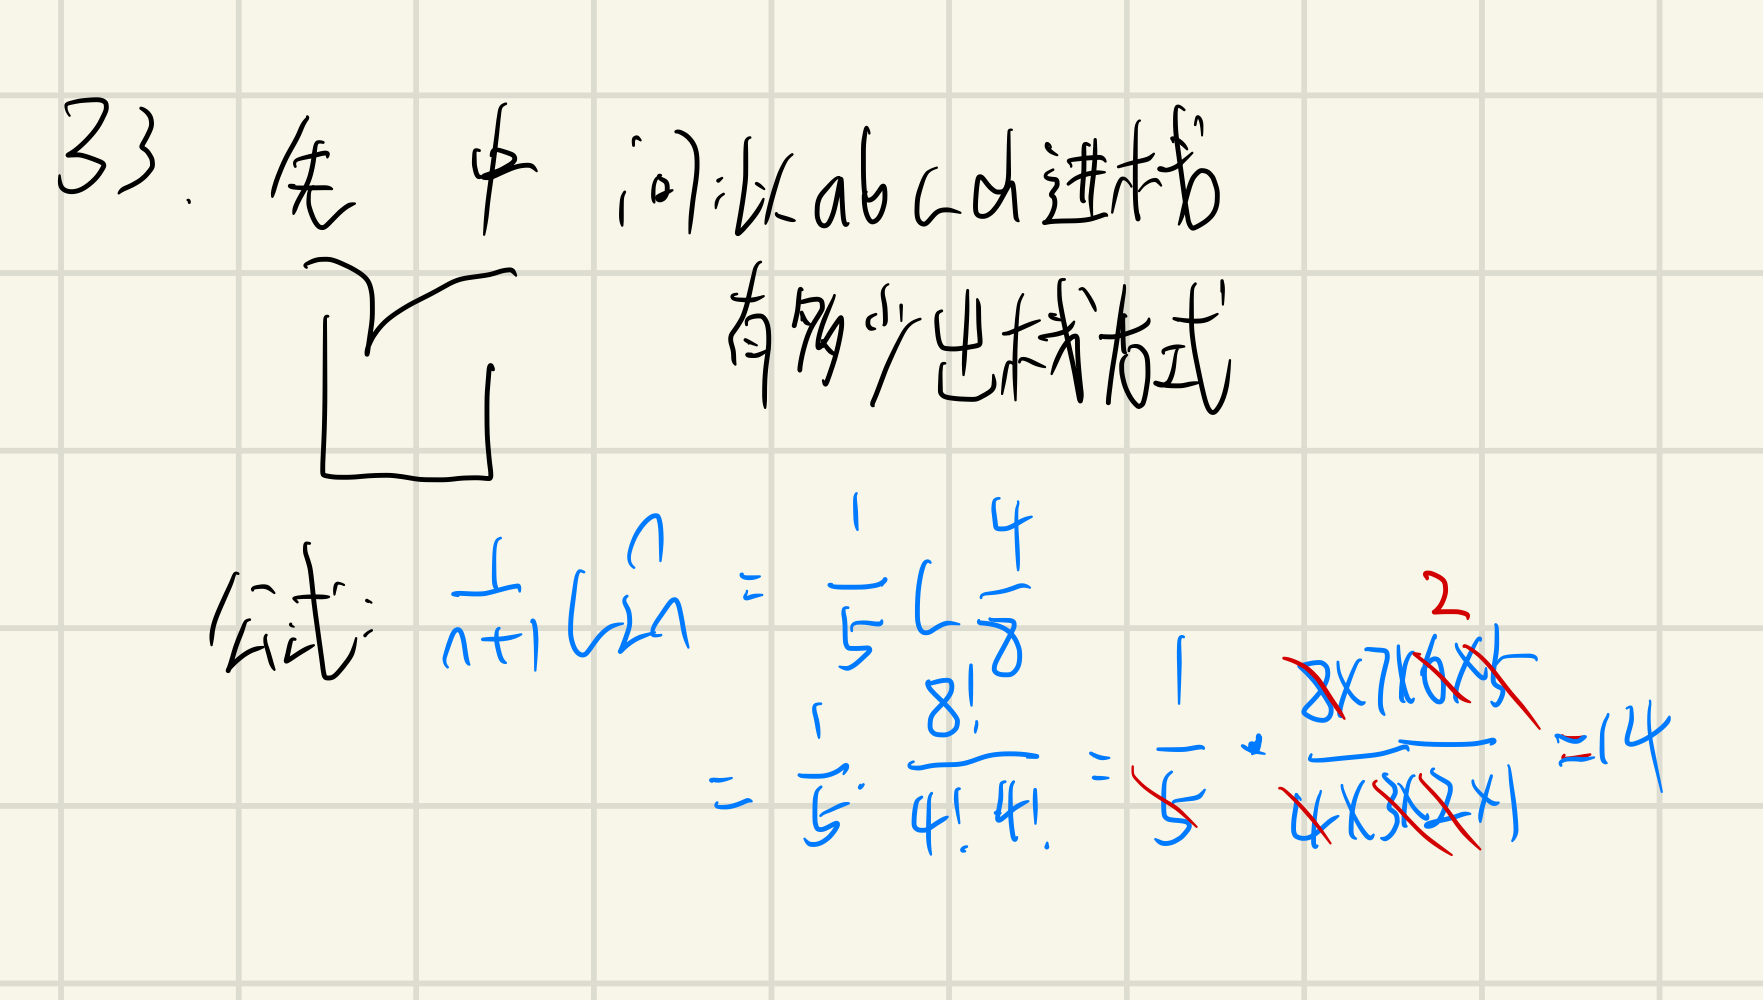 33. 先 中 问:以abcd进栈
有多少出栈方式
公式: 1/(n+1) C n 2n = 1/5 C 4 8
= 1/5 · 8!/(4! 4!) = 1/5 · (8×7×6×5)/(4×3×2×1) = 14
2